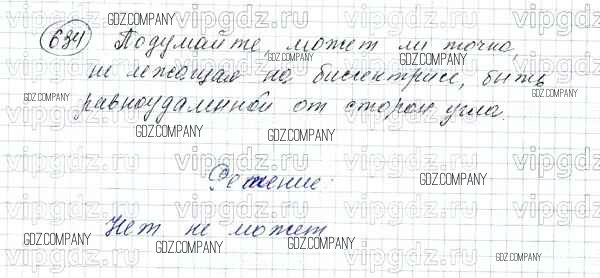 634 Подумайте, может ли точка,
не лежащая на биссектрисе, быть
равноудаленной от сторон угла.
Решение:
Нет не может
vipgdz.ru
GDZ.COMPANY